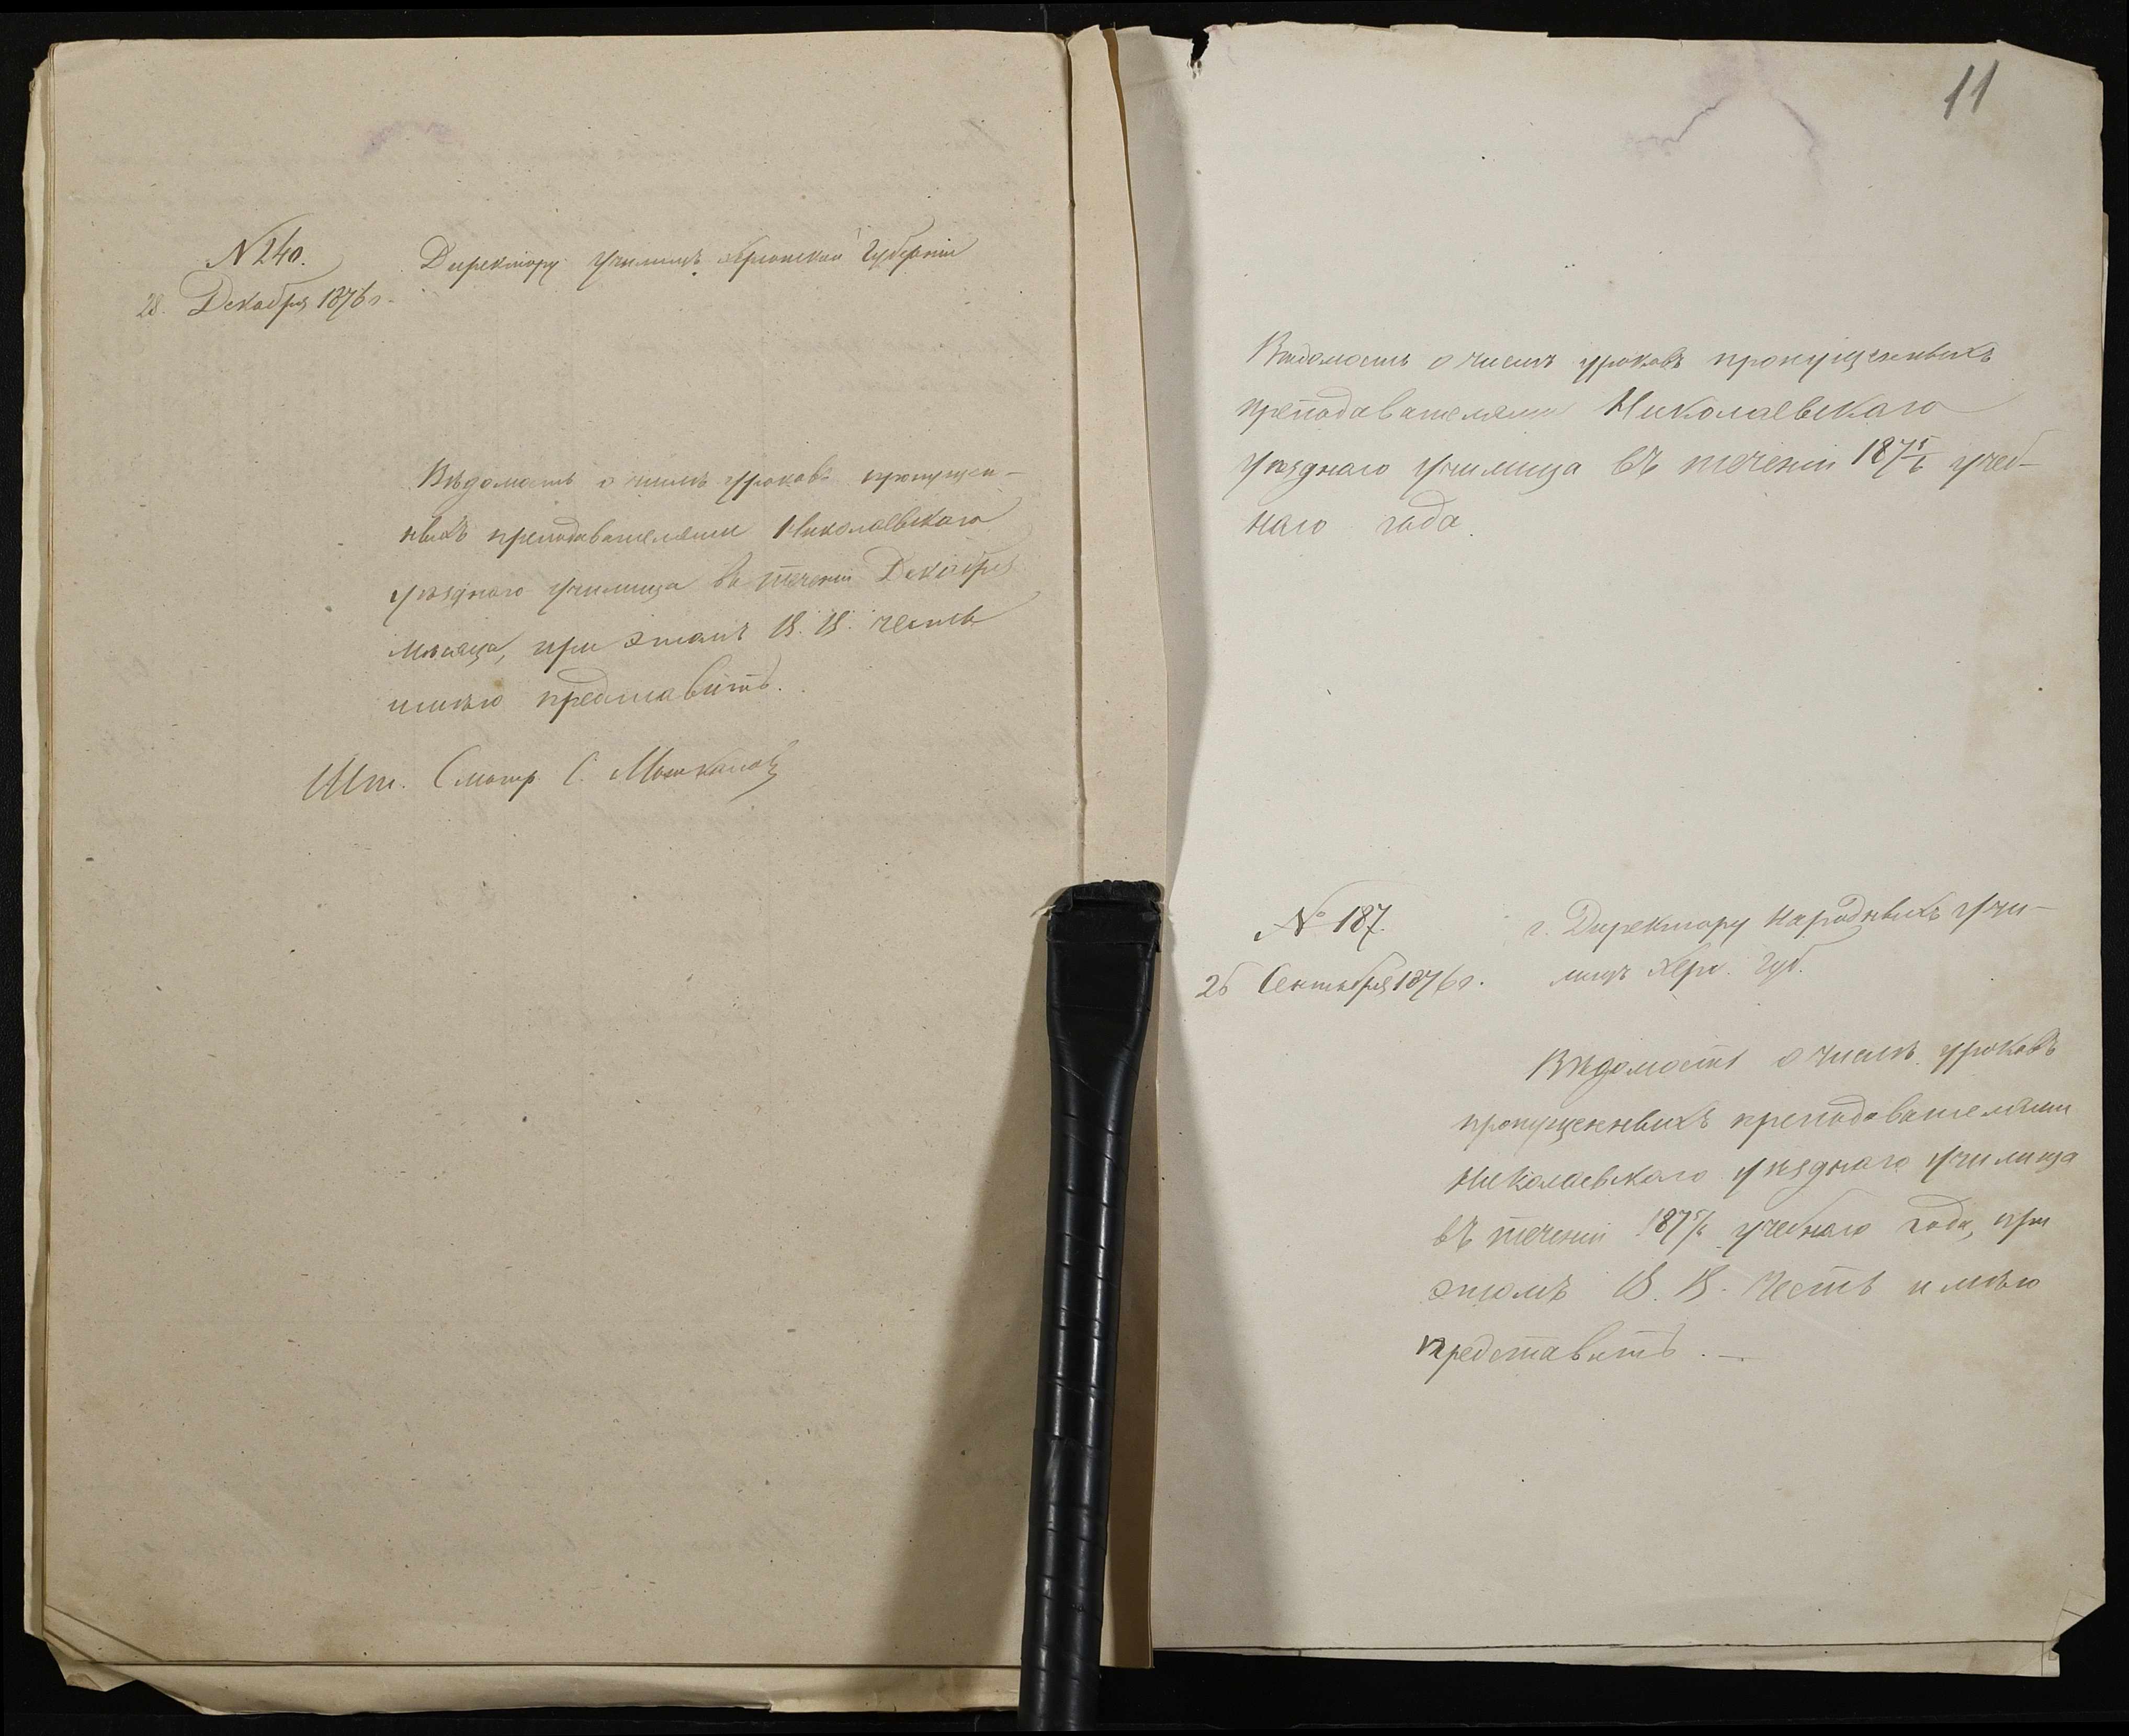 № 240.
28. Декабря 1876 г.
Директору училищъ Херсонской Губерніи
Вѣдомость о числѣ уроковъ пропущен-
ныхъ преподавателями Николаевскаго
уѣзднаго училища въ теченіи Декабря
мѣсяца, при этомъ В. В. честь
имѣю представить.
Шт. Смотр. С.
11
Вѣдомость о числѣ уроковъ пропущенныхъ
преподавателями Николаевскаго
уѣзднаго училища въ теченіи 1875/6 учеб-
наго года.
№ 187.
26 Сентября 1876 г.
г. Директору народныхъ учи-
лищъ Херс. Губ.
Вѣдомость о числѣ уроковъ
пропущенныхъ преподавателями
Николаевскаго уѣзднаго училища
въ теченіи 1875/6 учебнаго года, при
этомъ В. В. честь имѣю
представить. —